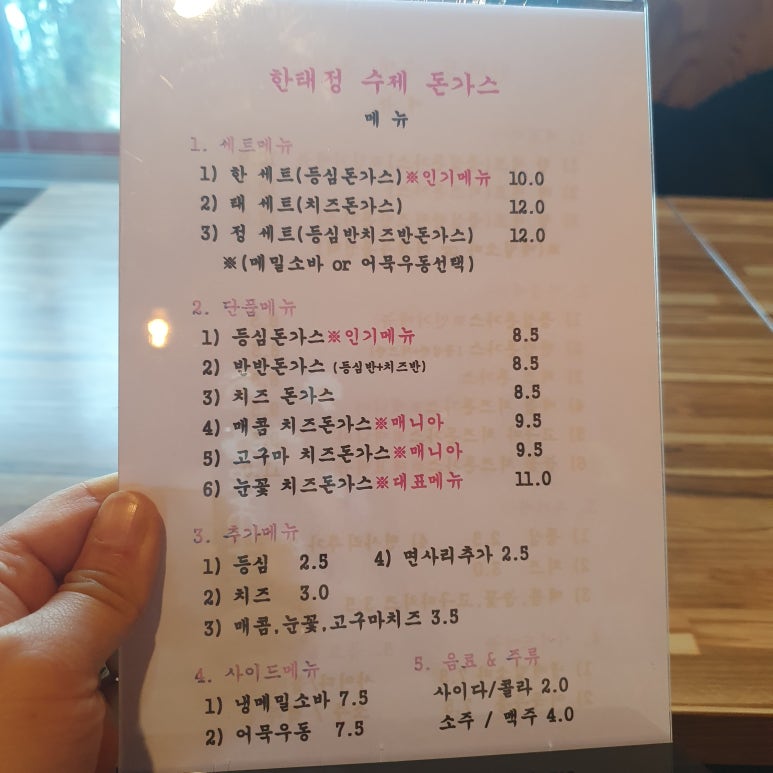 한태정 수제 돈가스
메 뉴
1. 세트메뉴
1) 한 세트(등심돈가스)※인기메뉴 10.0
2) 태 세트(치즈돈가스) 12.0
3) 정 세트(등심반치즈반돈가스) 12.0
※(메밀소바 or 어묵우동선택)
2. 단품메뉴
1) 등심돈가스※인기메뉴 8.5
2) 반반돈가스 (등심반+치즈반) 8.5
3) 치즈 돈가스 8.5
4) 매콤 치즈돈가스※매니아 9.5
5) 고구마 치즈돈가스※매니아 9.5
6) 눈꽃 치즈돈가스※대표메뉴 11.0
3. 추가메뉴
1) 등심 2.5 4) 면사리추가 2.5
2) 치즈 3.0
3) 매콤,눈꽃,고구마치즈 3.5
4. 사이드메뉴
1) 냉메밀소바 7.5
2) 어묵우동 7.5
5. 음료 & 주류
사이다/콜라 2.0
소주 / 맥주 4.0